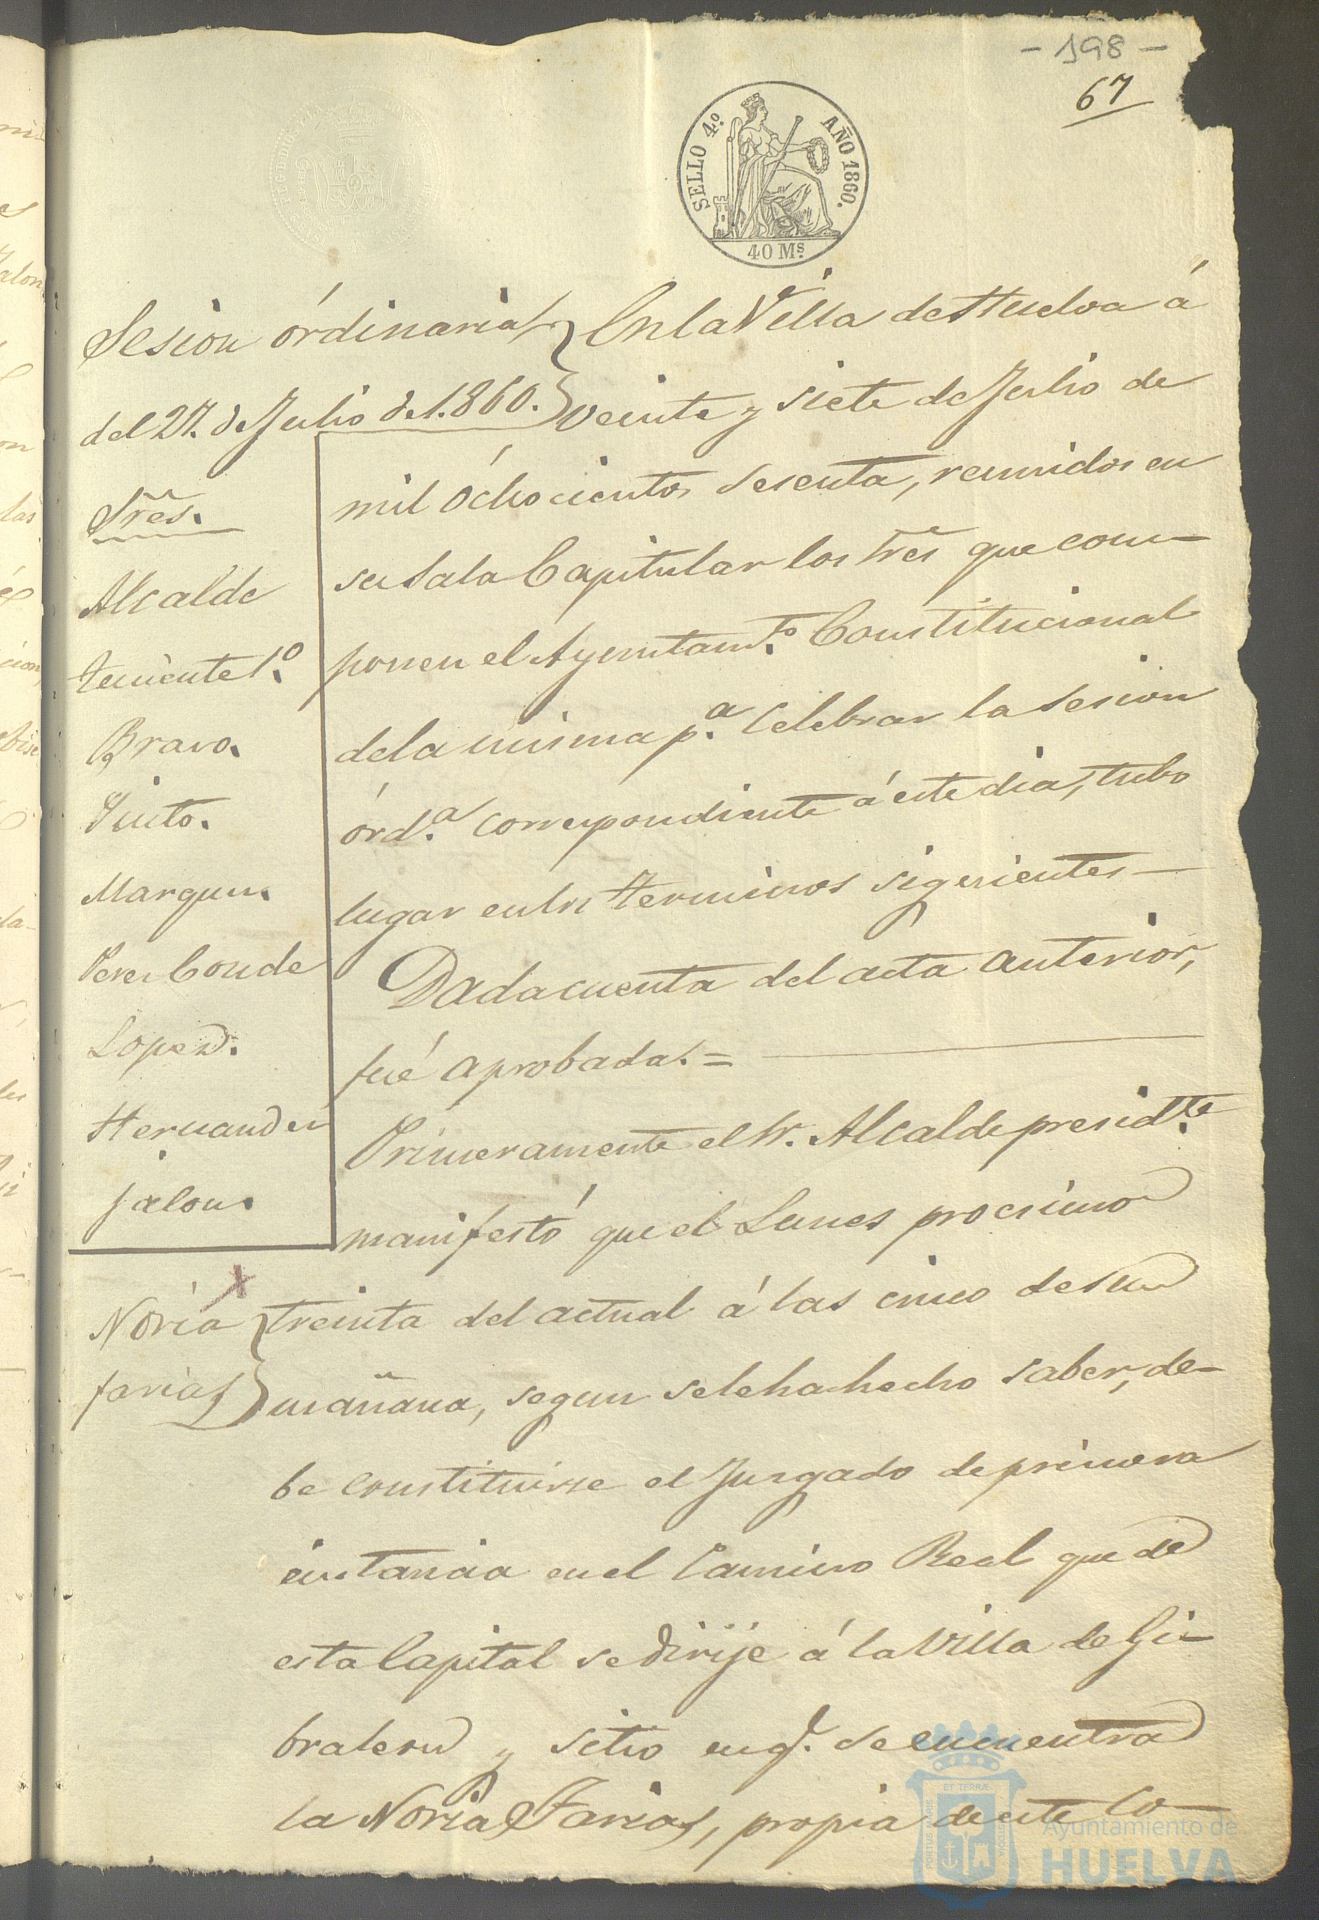 - 198 -
67
SELLO 4.º AÑO 1860.
40 Ms.
Sesion órdinaria
del 27. de Julio de 1.860.
Sres.
Alcalde
teniente 1.º
Bravo.
Pinto.
Marquez.
Perez Conde
Lopez.
Hernandez
jalon.
En la Villa de Huelva á
veinte y siete de Julio de
mil óchocientos sesenta, reunidos en
su Sala Capitular los Sres que com-
ponen el Ayuntam.to Constitucional
de la misma p.a celebrar la sesion
órd.a correspondiente á este dia, tubo
lugar en los terminos siguientes—
Dada cuenta del acta anterior,
fué aprobada. =
Primeramente el Sr. Alcalde presid.te
manifestó que el Lunes procsimo
Noria
farias
treinta del actual á las cinco de su
mañana, segun se le ha hecho saber, de-
be constituirse el Juzgado de primera
instancia en el Camino Real que de
esta Capital se dirije á la Villa de Gi-
braleon y sitio en q.e se encuentra
la Noria Farias, propia de este Co-
PORTUS MARIS ET TERRÆ CUSTODIA
Ayuntamiento de
HUELVA